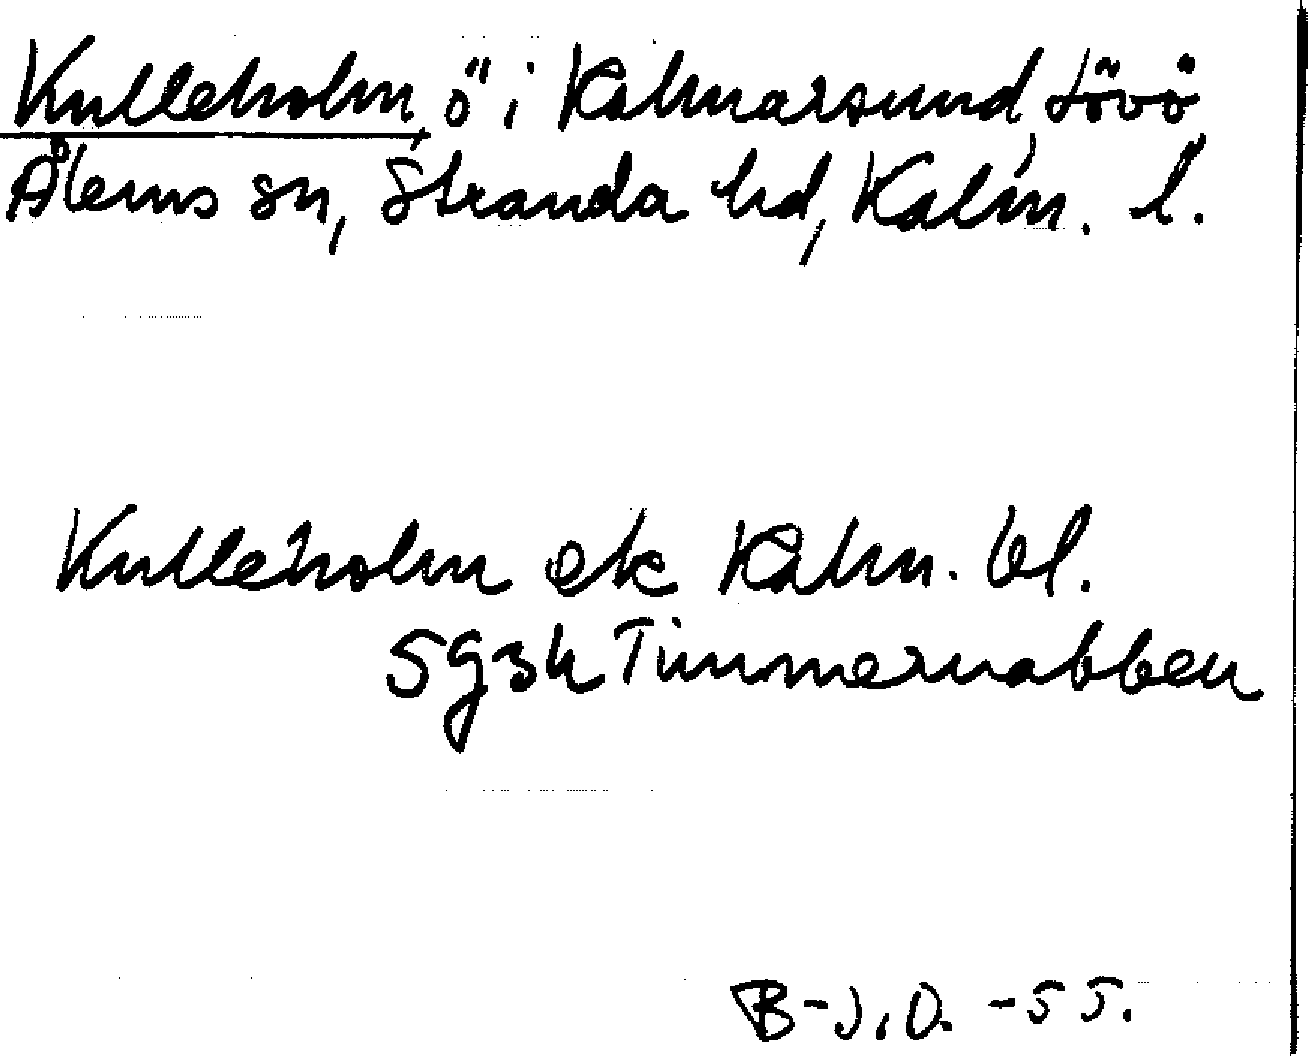 Kulleholm, ö i Kalmarsund, lövö
Ålems sn, Stranda hd, Kalm. l.
Kulleholm ek Kalm. bl.
5g3h Timmernabben
B-J.O. -55.